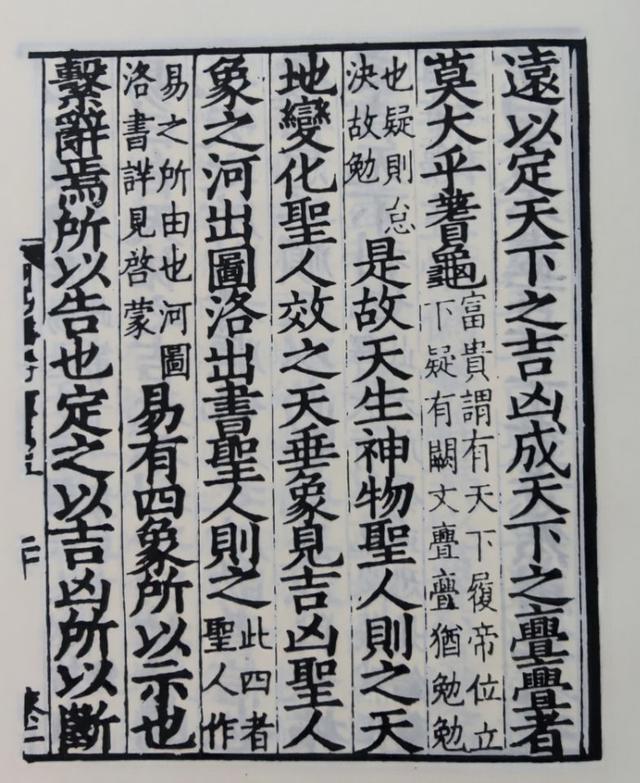 遠以定天下之吉凶成天下之亹亹者
莫大乎蓍龜
富貴謂有天下履帝位立
下疑有闕文亹亹猶勉勉
也疑則怠
決故勉
是故天生神物聖人則之天
地變化聖人效之天垂象見吉凶聖人
象之河出圖洛出書聖人則之
此四者
聖人作
易之所由也河圖
洛書詳見啓蒙
易有四象所以示也
繫辭焉所以告也定之以吉凶所以斷